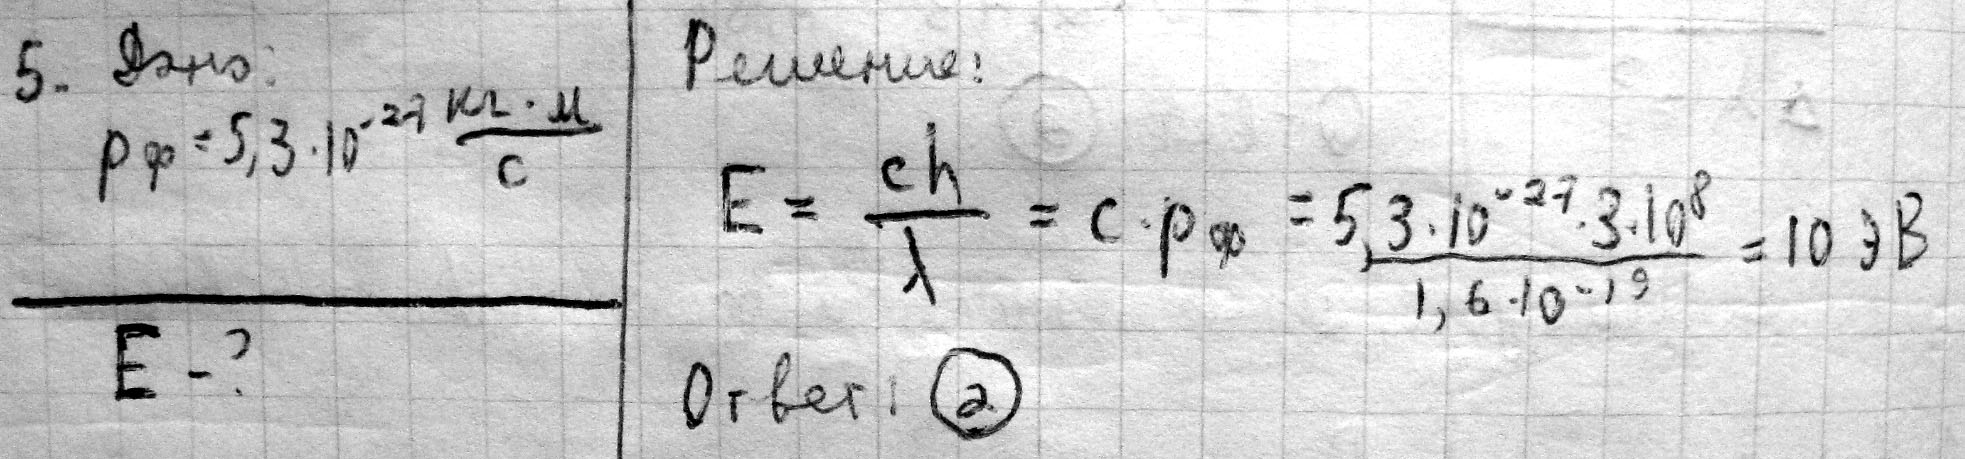 5. Дано:
pф = 5,3·10⁻²⁷ кг·м/с
E - ?
Решение:
E = ch/λ = c·pф = 5,3·10⁻²⁷·3·10⁸/1,6·10⁻¹⁹ = 10 эВ
Ответ: 2